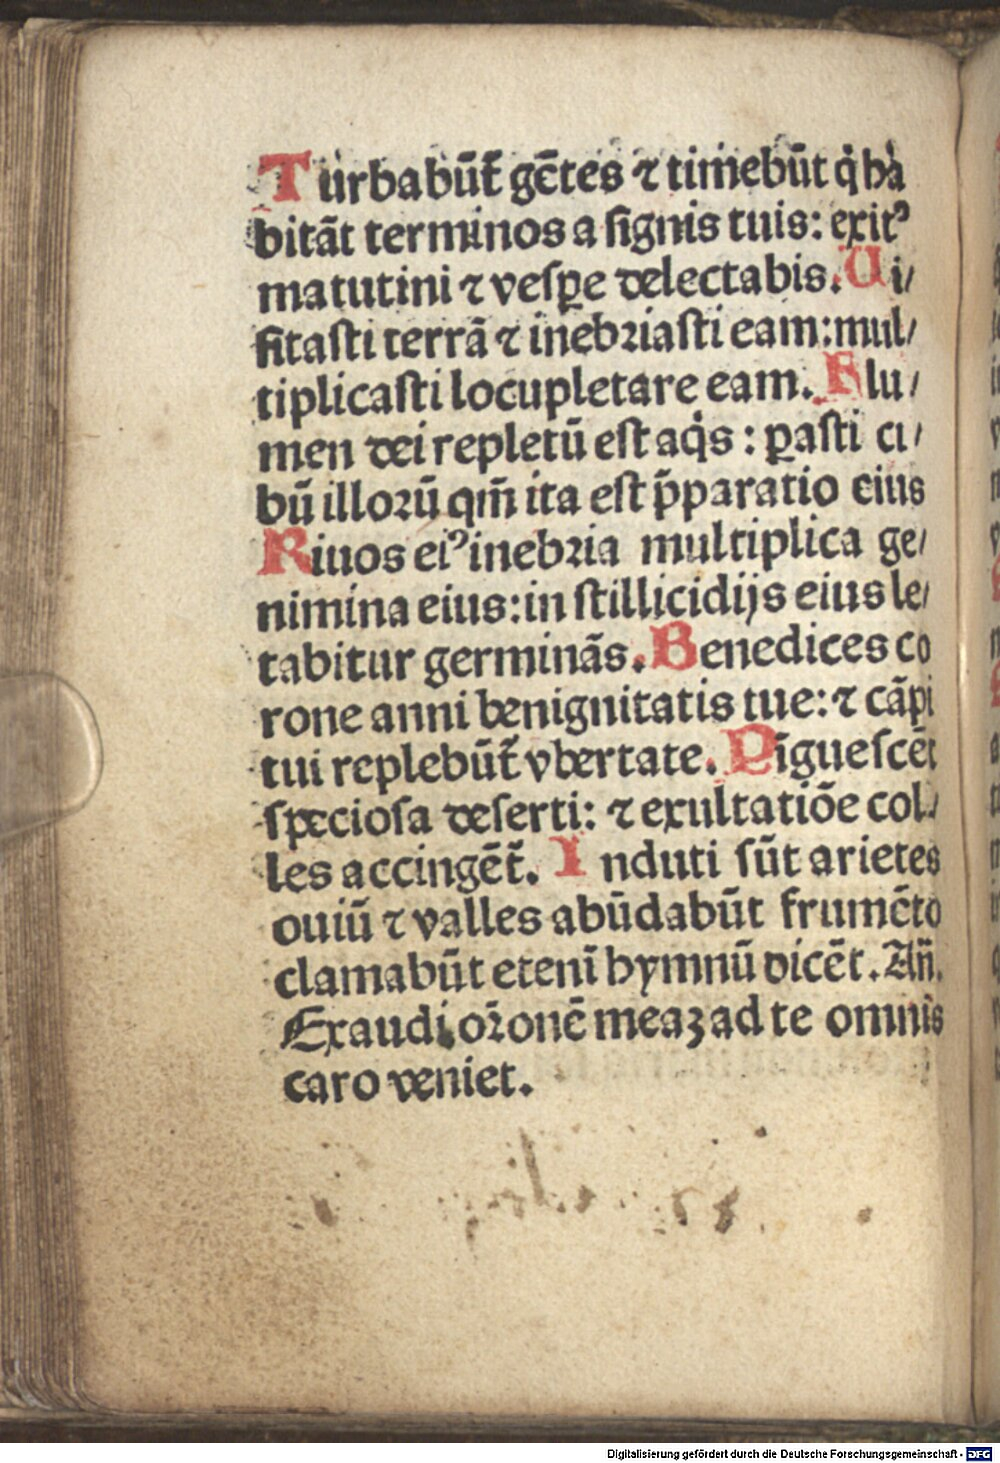 Turbabūt̄ gētes ⁊ timebūt q̇ ha
bitāt terminos a ſignis tuis: exitꝰ
matutini ⁊ veſꝑe delectabis. Ui/
ſitaſti terrā ⁊ inebꝛiaſti eam: mul/
tiplicaſti locupletare eam. Flu/
men dei repletū eſt aq̇s: ꝑaſti ci/
bū illoꝛū qm̄ ita eſt p̄paratio eius
Riuos eiꝰ inebꝛia multiplica ge/
nimina eius: in ſtillicidijs eius le/
tabitur germinās. Benedices co
rone anni benignitatis tue: ⁊ cāpi
tui replebūt̄ vbertate. Pīgueſcēt
ſpecioſa deſerti: ⁊ exultatiōe col/
les accingēt̄. Induti ſūt arietes
ouiū ⁊ valles abūdabūt frumēto
clamabūt etenī hymnū dicēt. An̄.
Exaudi oꝛ̄onē meaꝫ ad te omnis
caro veniet.
Digitalisierung gefördert durch die Deutsche Forschungsgemeinschaft - DFG